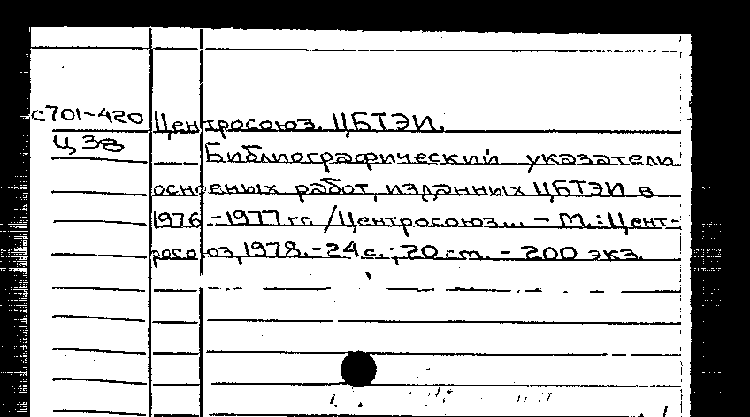 с701-420 Центросоюз. ЦБТЭИ.
Ц38 Библиографический указатель
основных работ, изданных ЦБТЭИ в
1976-1977 гг. /Центросоюз... - М.: Цент-
росоюз, 1978. - 24 с.; 20 см. - 200 экз.